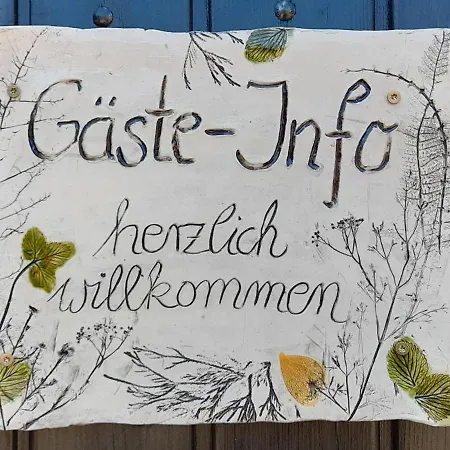 Gäste-Info
herzlich
willkommen